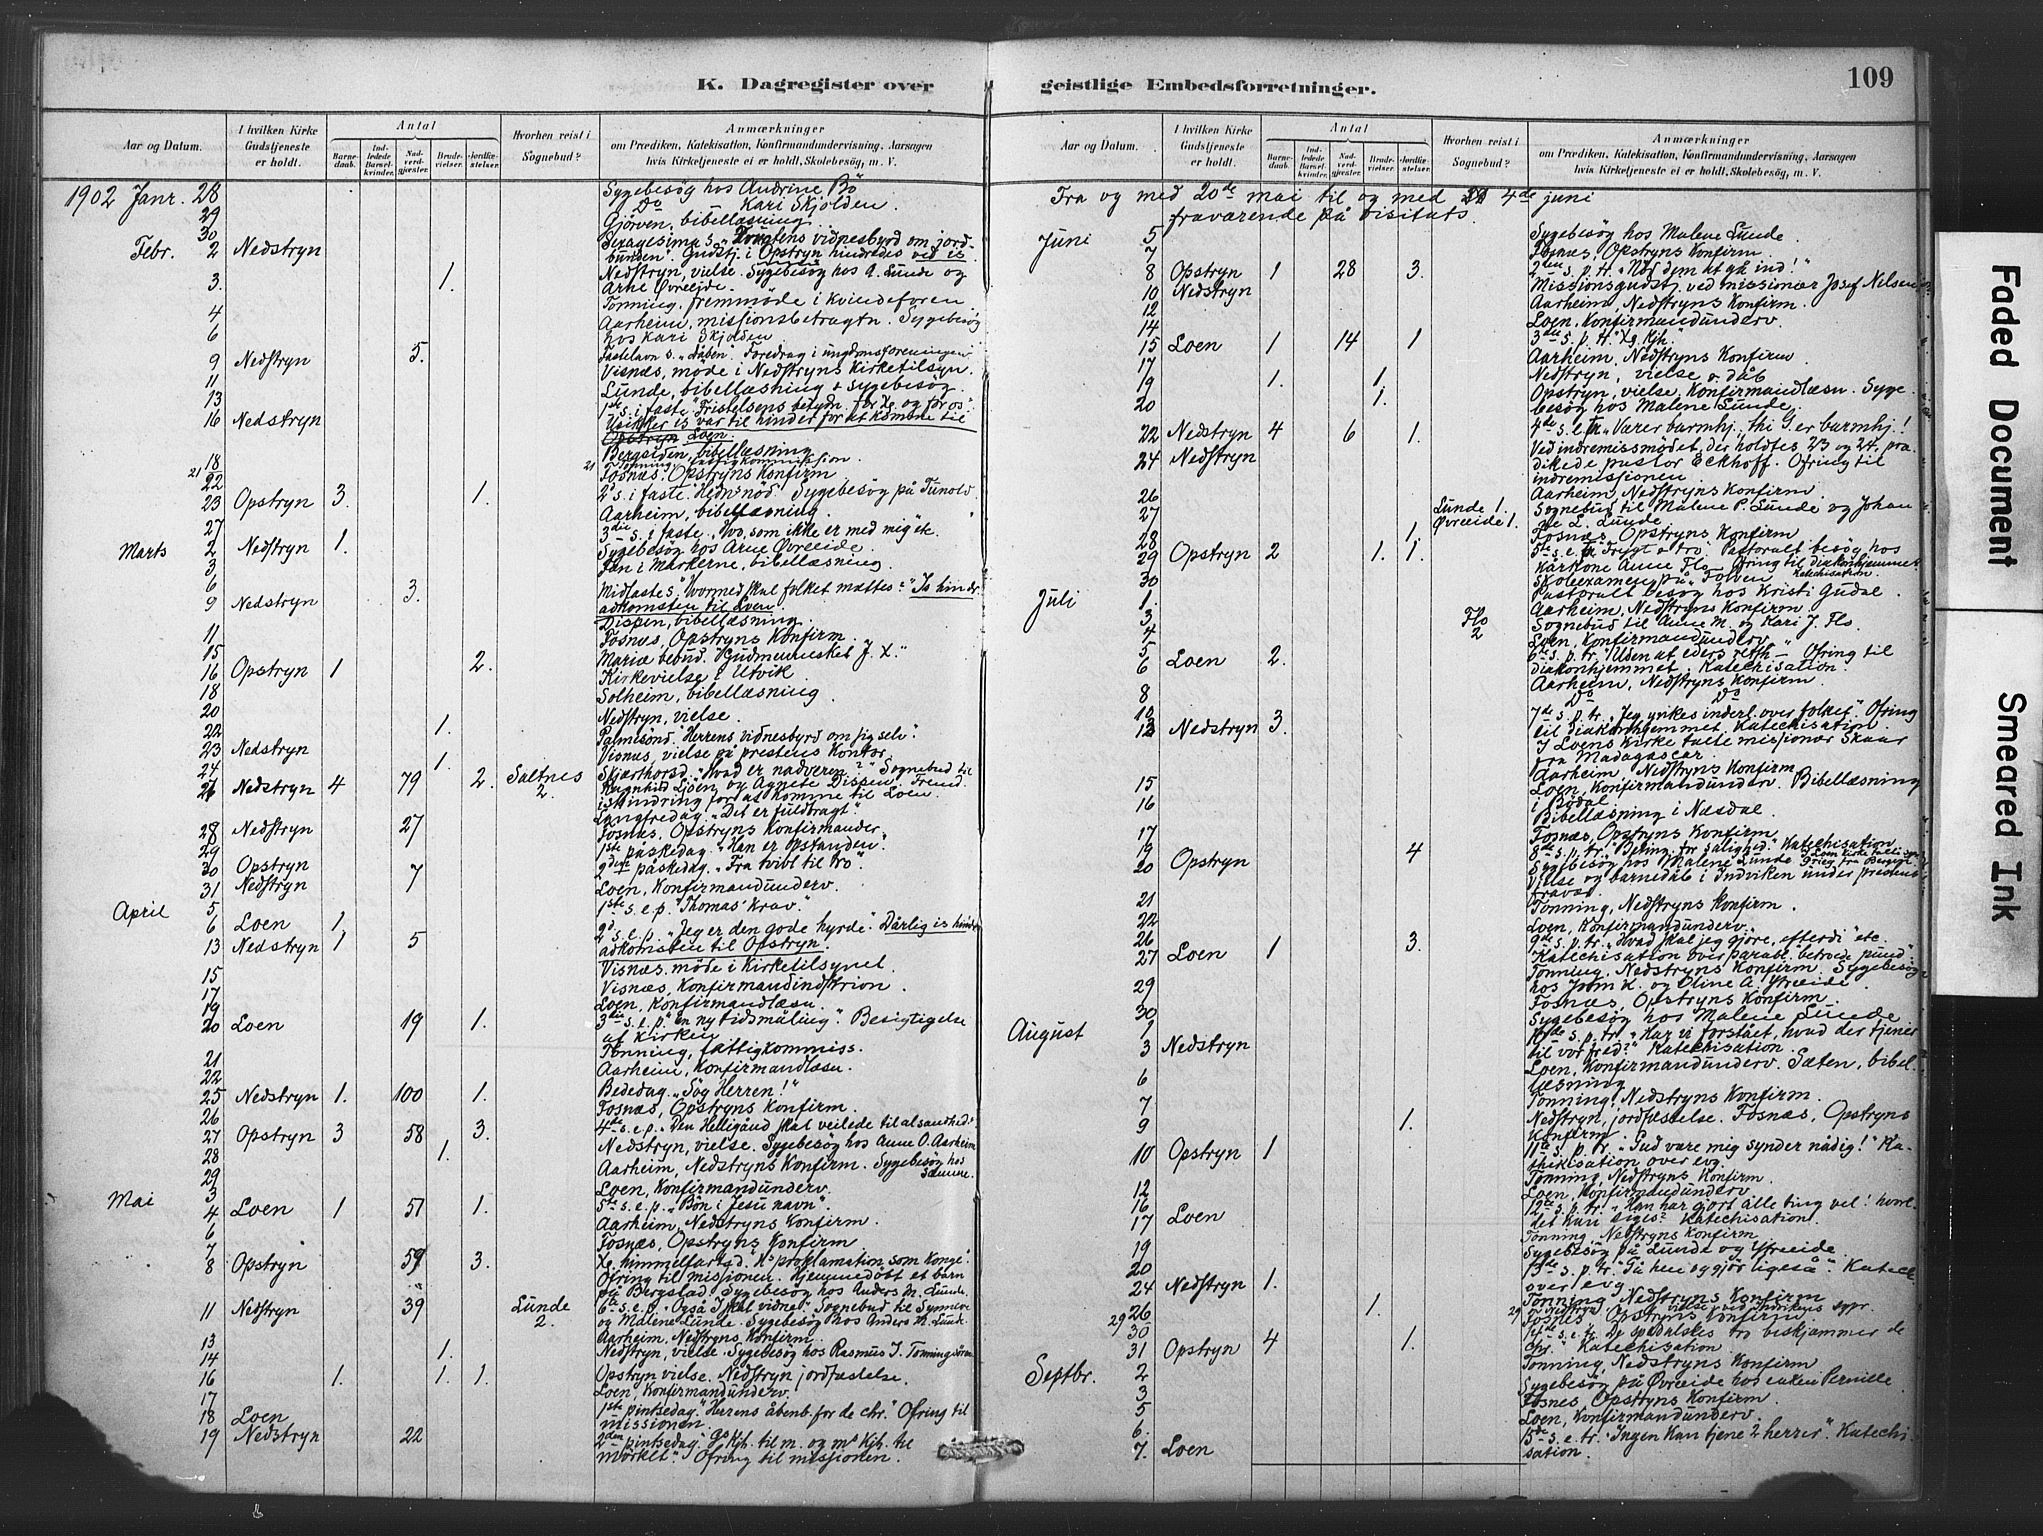 K. Dagregister over geistlige Embedsforretninger.
109
Aar og Datum.
I hvilken Kirke Gudstjeneste er holdt.
Antal
Barnedaab.
Indledede Barselkvinder.
Nadverdgjester.
Brudevielser.
Jordfæstelser.
Hvorhen reist i Sognebud?
Anmærkninger
om Prædiken, Katekisation, Konfirmandundervisning, Aarsagen
hvis Kirketjeneste ei er holdt, Skolebesøg, m. V.
1902 Janr. 28 Sygebesøg hos Andrine Bö
29 Do Kari Skjolden.
30 Gjörven, bibellæsning
Febr. 2 Nedstryn Sexagesima s. vidnesbyrd om jord-
bunden". Gudstj. i Opstryn hindredes ved is.
3. 1. Nedstryn, vielse. Sygebesøg hos A. Lunde og
Arne Øvreeide.
4 Tonning, fremmöde i kvindeforen
6 Aarheim, missionsbetragtn. Sygebesøg
hos Kari Skjolden
9 Nedstryn 5. Fastelavn s. "Dåben". Foredrag i ungdmsforeningen
11 Visnæs, möde i Nedstryns Kirketilsyn.
13 Lunde, bibellæsning & sygebesøg.
16 Nedstryn 1ste s. i faste "Fristelsens betydn. for Xs og for os".
Usikker is var til hinder for at komme til
Opstryn Loen.
18 Bergsiden, bibellæsning
21 Tonning, fattigkommission.
22 Fosnæs, Opstryns Konfirm
23 Opstryn 3. 1. 2d s. i faste. Hedn. nöd. Sygebesøg på Tunold.
27 Aarheim, bibellæsning.
Marts 2 Nedstryn 1. 3die s. i faste. "Hvo, som ikke er med mig" etc.
3 Sygebesøg hos Arne Øvreeide.
6 Fan i Markerne, bibellæsning.
9 Nedstryn 3. Midfaste s. "Hvormed skal folket mættes?" Is hindr.
adkomsten til Loen.
11 Dispen, bibellæsning.
15 Fosnæs, Opstryns Konfirm.
16 Opstryn 1 2. Mariæ bebud. "Gudmennesket J. X."
18 Kirkevielse i Utvik
20 Solheim, bibellæsning
22 1. Nedstryn, vielse.
23 Nedstryn Palmesönd. "Herrens vidnesbyrd om sig selv".
24 1. Visnæs, vielse på prestens Kontor
27 Nedstryn 4 79 2. Saltnes 2. Skjærthorsd. "Hvad er nadveren?" Sognebud til
Ragnhild Ljöen og Agnete Dispen.
ishindring for at komme til Loen.
28 Nedstryn 27 Langfredag. "Det er fuldbragt".
29 Fosnæs, Opstryns Konfirmander
30 Opstryn 7 1ste påskedag. "Han er opstanden".
31 Nedstryn 2den påskedag. "Fra tvibl til tro".
April 5 Loen, Konfirmandunderv.
6 Loen 1. 1ste s. e. p. "Thomas' krav"
13 Nedstryn 1 5 2d s. e. p. "Jeg er den gode hyrde". Dårlig is hindr.
adkomsten til Opstryn.
15 Visnæs. möde i Kirketilsynet.
17 Visnæs, Konfirmandindskrivn.
19 Loen, Konfirmandlæsn.
20 Loen 19 1. 3die s. e. p. "en ny tidsmåling". Besigtigelse
af Kirken
21 Tonning, fattigkommiss.
22 Aarheim, Konfirmandlæsn.
25 Nedstryn 1. 100 1. Bededag. "Søg Herren!"
26 Fosnæs, Opstryns Konfirm.
27 Opstryn 3 58 3. 4de s. e. p. "Den Helligånd skal veilede til al sandhed."
28 1. Nedstryn, vielse. Sygebesøg hos Anne O. Aarheim
29 Aarheim, Nedstryns Konfirm. Sygebesøg hos
Samme.
Mai 3 Loen, Konfirmandunderv.
4 Loen 1 51 1. 5te s. e. p. "Bön i Jesu navn".
6 Aarheim, Nedstryns Konfirm.
7 Fosnæs, Opstryns Konfirm
8 Opstryn 59 3. Xi himmelfartsd. "Xs proklamation som Konge".
Ofring til missionen. Hjemmedöbt et barn
på Bergstad. Sygebesøg hos Anders M. Lunde.
11 Nedstryn 39 Lunde 2. 6te s. e. p. "Også I skal vidne". Sognebud til Synneve
og Malene Lunde. Sygebesøg hos Anders M. Lunde.
13 Aarheim, Nedstryns Konfirm.
14 1. Nedstryn, vielse. Sygebesøg hos Rasmus J. Tonningsören
16 1. 1. 1. Opstryn vielse. Nedstryn jordfæstelse.
17 Loen, Konfirmandunderv.
18 Loen 1ste pintsedag. "Herrens åbenb. for de chr." Ofring til
missionen.
19 Nedstryn 22 2den pintsedag. "Gs Kjh. til m. og ms Kjh. til
mörket". Ofring til missionen.
Aar og Datum.
I hvilken Kirke Gudstjeneste er holdt.
Antal
Barnedaab.
Indledede Barselkvinder.
Nadverdgjester.
Brudevielser.
Jordfæstelser.
Hvorhen reist i Sognebud?
Anmærkninger
om Prædiken, Katekisation, Konfirmandundervisning, Aarsagen
hvis Kirketjeneste ei er holdt, Skolebesøg, m. V.
Fra og med 20de mai til og med 4de juni
fraværende på visitats.
Juni 5 Sygebesøg hos Malene Lunde.
7 Fosnæs, Opstryns Konfirm.
8 Opstryn 1 28 3. 2den s. p. tr. "Nöd dem at gå ind!"
10 Nedstryn Missionsgudstj. ved missionær Josef Nilsen
12 Aarheim, Nedstryns Konfirm.
14 Loen, Konfirmandunderv.
15 Loen 1 14 1 3die s. p. tr. Xs Kjh.
17 Aarheim, Nedstryns Konfirm
19 1. 1. Nedstryn, vielse & dåb
20 1. Opstryn, vielse. Konfirmandlæsn. Syge-
besøg hos Malene Lunde.
22 Nedstryn 4 6 1. 4de s. e. tr. "Værer barmhj. thi G. er barmhj.!
24 Nedstryn Ved indremissmödet, der holdtes 23 og 24. præ-
dikede pastor Eckhoff. Ofring til
indremissionen.
26 Aarheim, Nedstryns Konfirm.
27 Lunde 1. Øvreeide 1. Sognebud til Malene P. Lunde og Johan
ne L. Lunde
28 1 Fosnæs, Opstryns Konfirm
29 Opstryn 2 1. 1. 5te s. e. tr. "Frygt & tro". Pastoralt besøg hos
Kårkone Anne Flo. Ofring til diakonhjemmet.
Katechisation.
30 Skoleexamen på Folven
Juli 1. Pastoralt besøg hos Kristi Gudal.
3 Aarheim, Nedstryns Konfirm
4 Flo 2 Sognebud til Anne M. og Kari J. Flo.
5 Loen, Konfirmandunderv
6 Loen 2. 6te s. p. tr. "Uden at eders retf. –" Ofring til
diakonhjemmet. Katechisation.
8 Aarheim, Nedstryns Konfirm.
10 Do Do
13 Nedstryn 3. 7de s. p. tr. "Jeg ynkes inderl. over folket". Ofring
til diakonhjemmet. Katechisation
I Loens Kirke talte missionær Skaar
fra Madagascar.
15 Aarheim, Nedstryns Konfirm
16 Loen, Konfirmandunderv. Bibellæsning
i Bödal
17 Bibellæsning i Næsdal
19 Fosnæs, Opstryns Konfirm
20 Opstryn 4 8de s. p. tr. "Beting. for salighed". Katechisation
Sygebesøg hos Malene Lunde
Vielse og barnedåb i Indviken under prestens
fravær
21 Tonning, Nedstryns Konfirm.
22
26 Loen, Konfirmandunderv.
27 Loen 1 3. 9de s. p. tr. "Hvad skal jeg gjöre, efterdi" etc
Katechisation over parabl. "betroede pund".
29 Tonning. Nedstryns Konfirm. Sygebesøg
hos John K. og Oline A. Yreeide.
30 Fosnæs, Opstryns Konfirm.
August 1 Sygebesøg hos Malene Lunde
3 Nedstryn 10de s. p. tr. "Har vi forstået, hvad der tjener
til vor fred?" Katechisation.
6 Loen, Konfirmandunderv. Sæten, bibel-
læsning
7 Tonning, Nedstryns Konfirm.
9 1. Nedstryn, jordfæstelse. Fosnæs, Opstryns
Konfirm.
10 Opstryn 1 11te s. p. tr. "Gud være mig synder nådig!" Ka-
thekisation over evg.
12 Tonning, Nedstryns Konfirm.
16 Loen, Konfirmandunderv
17 Loen 12te s. p. tr. "Han har gjort alle ting vel! hvorl.
det kan siges? Katechisation.
19 Tonning, Nedstryns Konfirm
20 Sygebesøg på Lunde og Yreeide.
24 Nedstryn 1. 13de s. p. tr. "Gå hen og gjör ligeså". Katech
over evg
26 Tonning Nedstryns Konfirm
29 1. 29 Nedstryn, vielse ved Indvikens sgpr.
30 Fosnæs Opstryns Konfirm
31 Opstryn 4 1. 14de s. e. tr. De spedalskes tro beskjæmmer de
chr." Katechisation.
Septbr. 2 Tonning, Nedstryns Konfirm
3 Sygebesøg på Øvreeide hos enken Pernille
5 Fosnes, Opstryns Konfirm.
6. Loen, Konfirmandunderv.
7. Loen 15de s. e. tr. "Ingen kan tjene 2 herrer". Katechi-
sation.
Faded Document
Smeared Ink